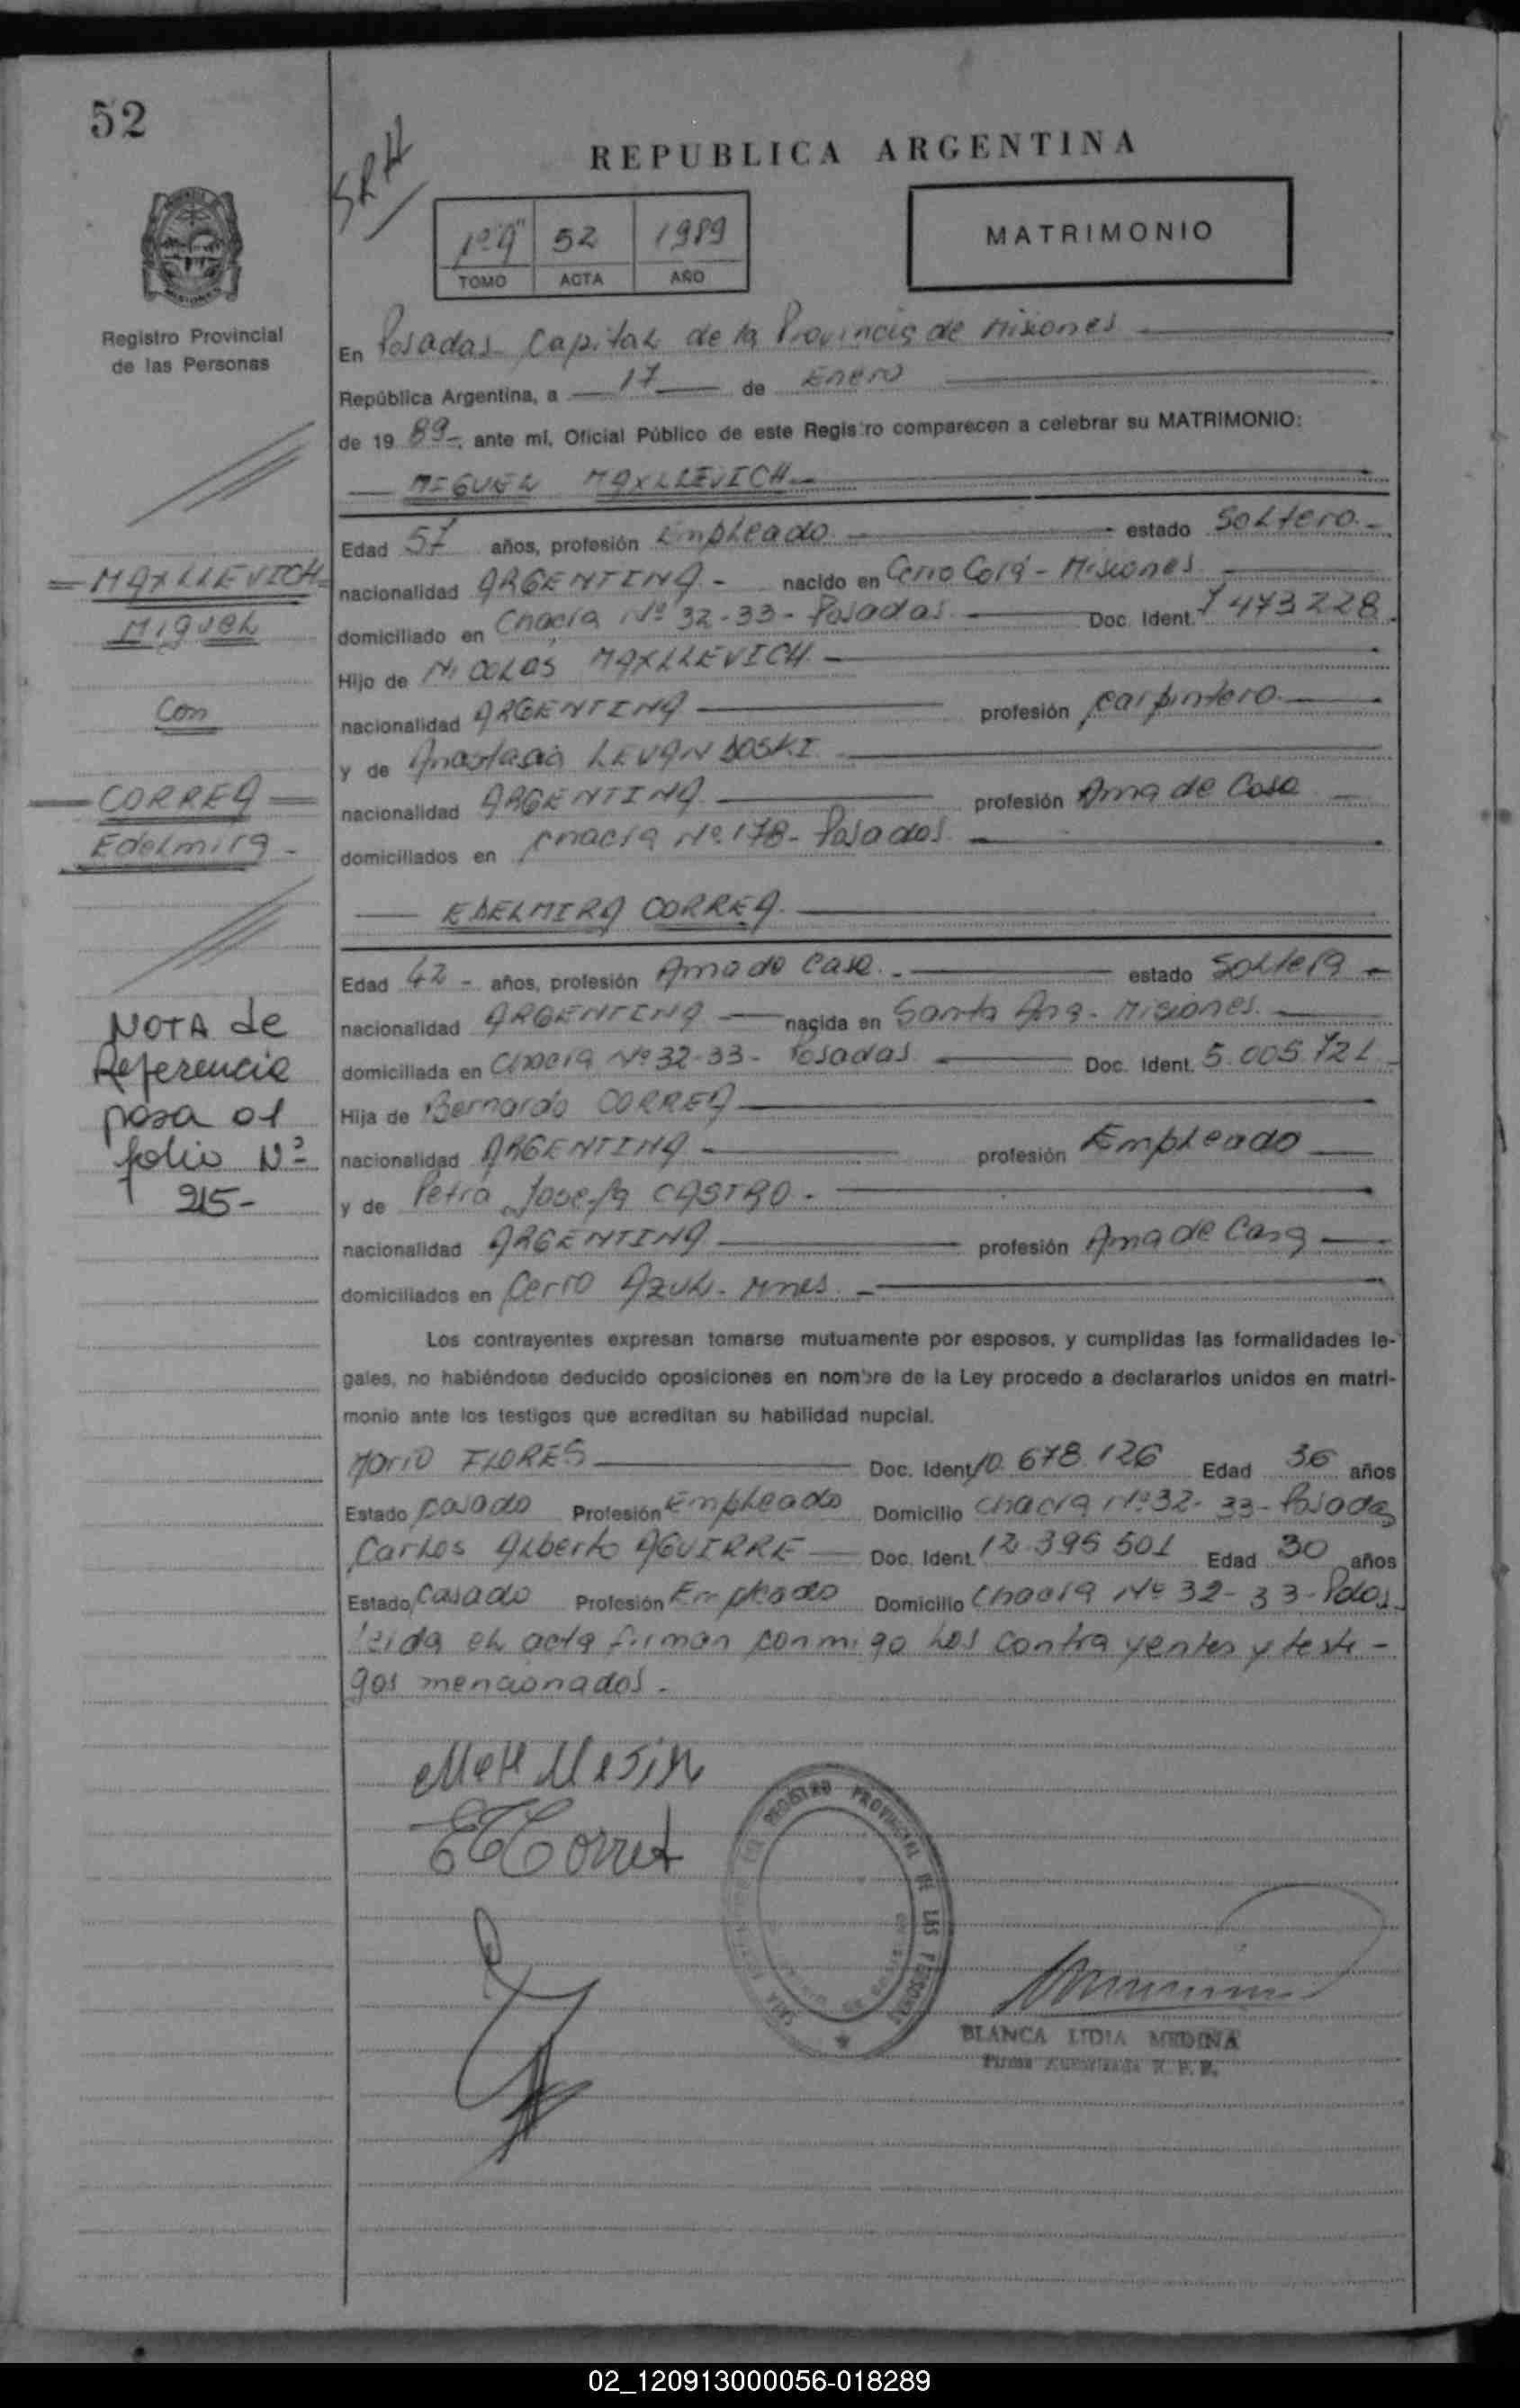 52
REPUBLICA ARGENTINA
SRH
1º "A" 52 1989
TOMO ACTA AÑO
MATRIMONIO
Registro Provincial
de las Personas
En Posadas Capital de la Provincia de Misiones
República Argentina, a 17 de Enero
de 19 89 ante mí, Oficial Público de este Registro comparecen a celebrar su MATRIMONIO:
MIGUEL MAXLLEVICH
Edad 57 años, profesión Empleado estado Soltero
nacionalidad ARGENTINA nacido en Cerro Corá - Misiones
domiciliado en Chacra Nº 32-33 - Posadas Doc. Ident. 7 473 228
Hijo de NICOLAS MAXLLEVICH
nacionalidad ARGENTINA profesión carpintero
y de Anastasia LEVANDOSKI
nacionalidad ARGENTINA profesión Ama de Casa
domiciliados en chacra Nº 178 - Posadas
EDELMIRA CORREA
Edad 42 - años, profesión Ama de casa estado Soltera
nacionalidad ARGENTINA nacida en Santa Ana - Misiones
domiciliada en Chacra Nº 32-33 - Posadas Doc. Ident. 5.005.721
Hija de Bernardo CORREA
nacionalidad ARGENTINA profesión Empleado
y de Petra Josefa CASTRO
nacionalidad ARGENTINA profesión Ama de Casa
domiciliados en Cerro Azul - Mnes
Los contrayentes expresan tomarse mutuamente por esposos, y cumplidas las formalidades le-
gales, no habiéndose deducido oposiciones en nombre de la Ley procedo a declararlos unidos en matri-
monio ante los testigos que acreditan su habilidad nupcial.
Mario FLORES Doc. Ident. 10.678.126 Edad 36 años
Estado casado Profesión Empleado Domicilio chacra Nº 32-33 - Posadas
Carlos Alberto AGUIRRE Doc. Ident. 12.395 501 Edad 30 años
Estado Casado Profesión Empleado Domicilio Chacra Nº 32-33 - Pdas.
leida el acta firman conmigo los contrayentes y testi-
gos mencionados.
MAXLLEVICH
Miguel
Con
CORREA
Edelmira
NOTA de
Referencia
pasa al
folio Nº
215-
E Correa
REGISTRO PROVINCIAL DE LAS PERSONAS
BLANCA LIDIA MEDINA
Firma Autorizada R. P. P.
02_120913000056-018289